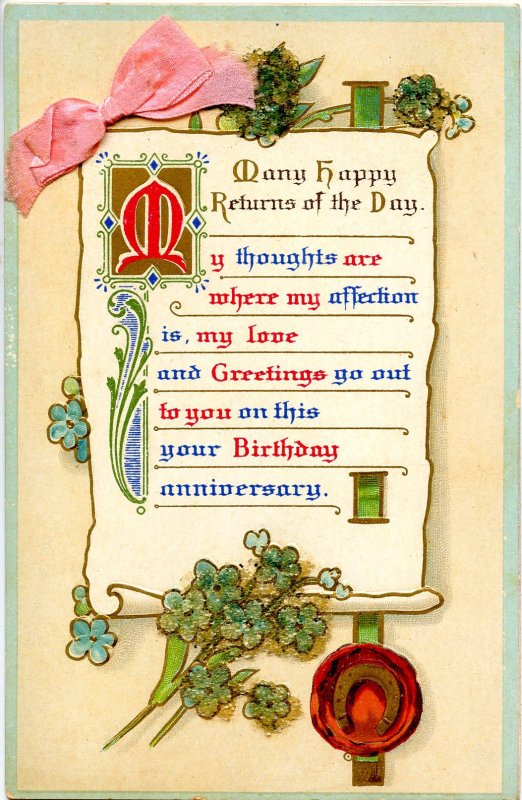 Many Happy
Returns of the Day.
My thoughts are
where my affection
is, my love
and Greetings go out
to you on this
your Birthday
anniversary.